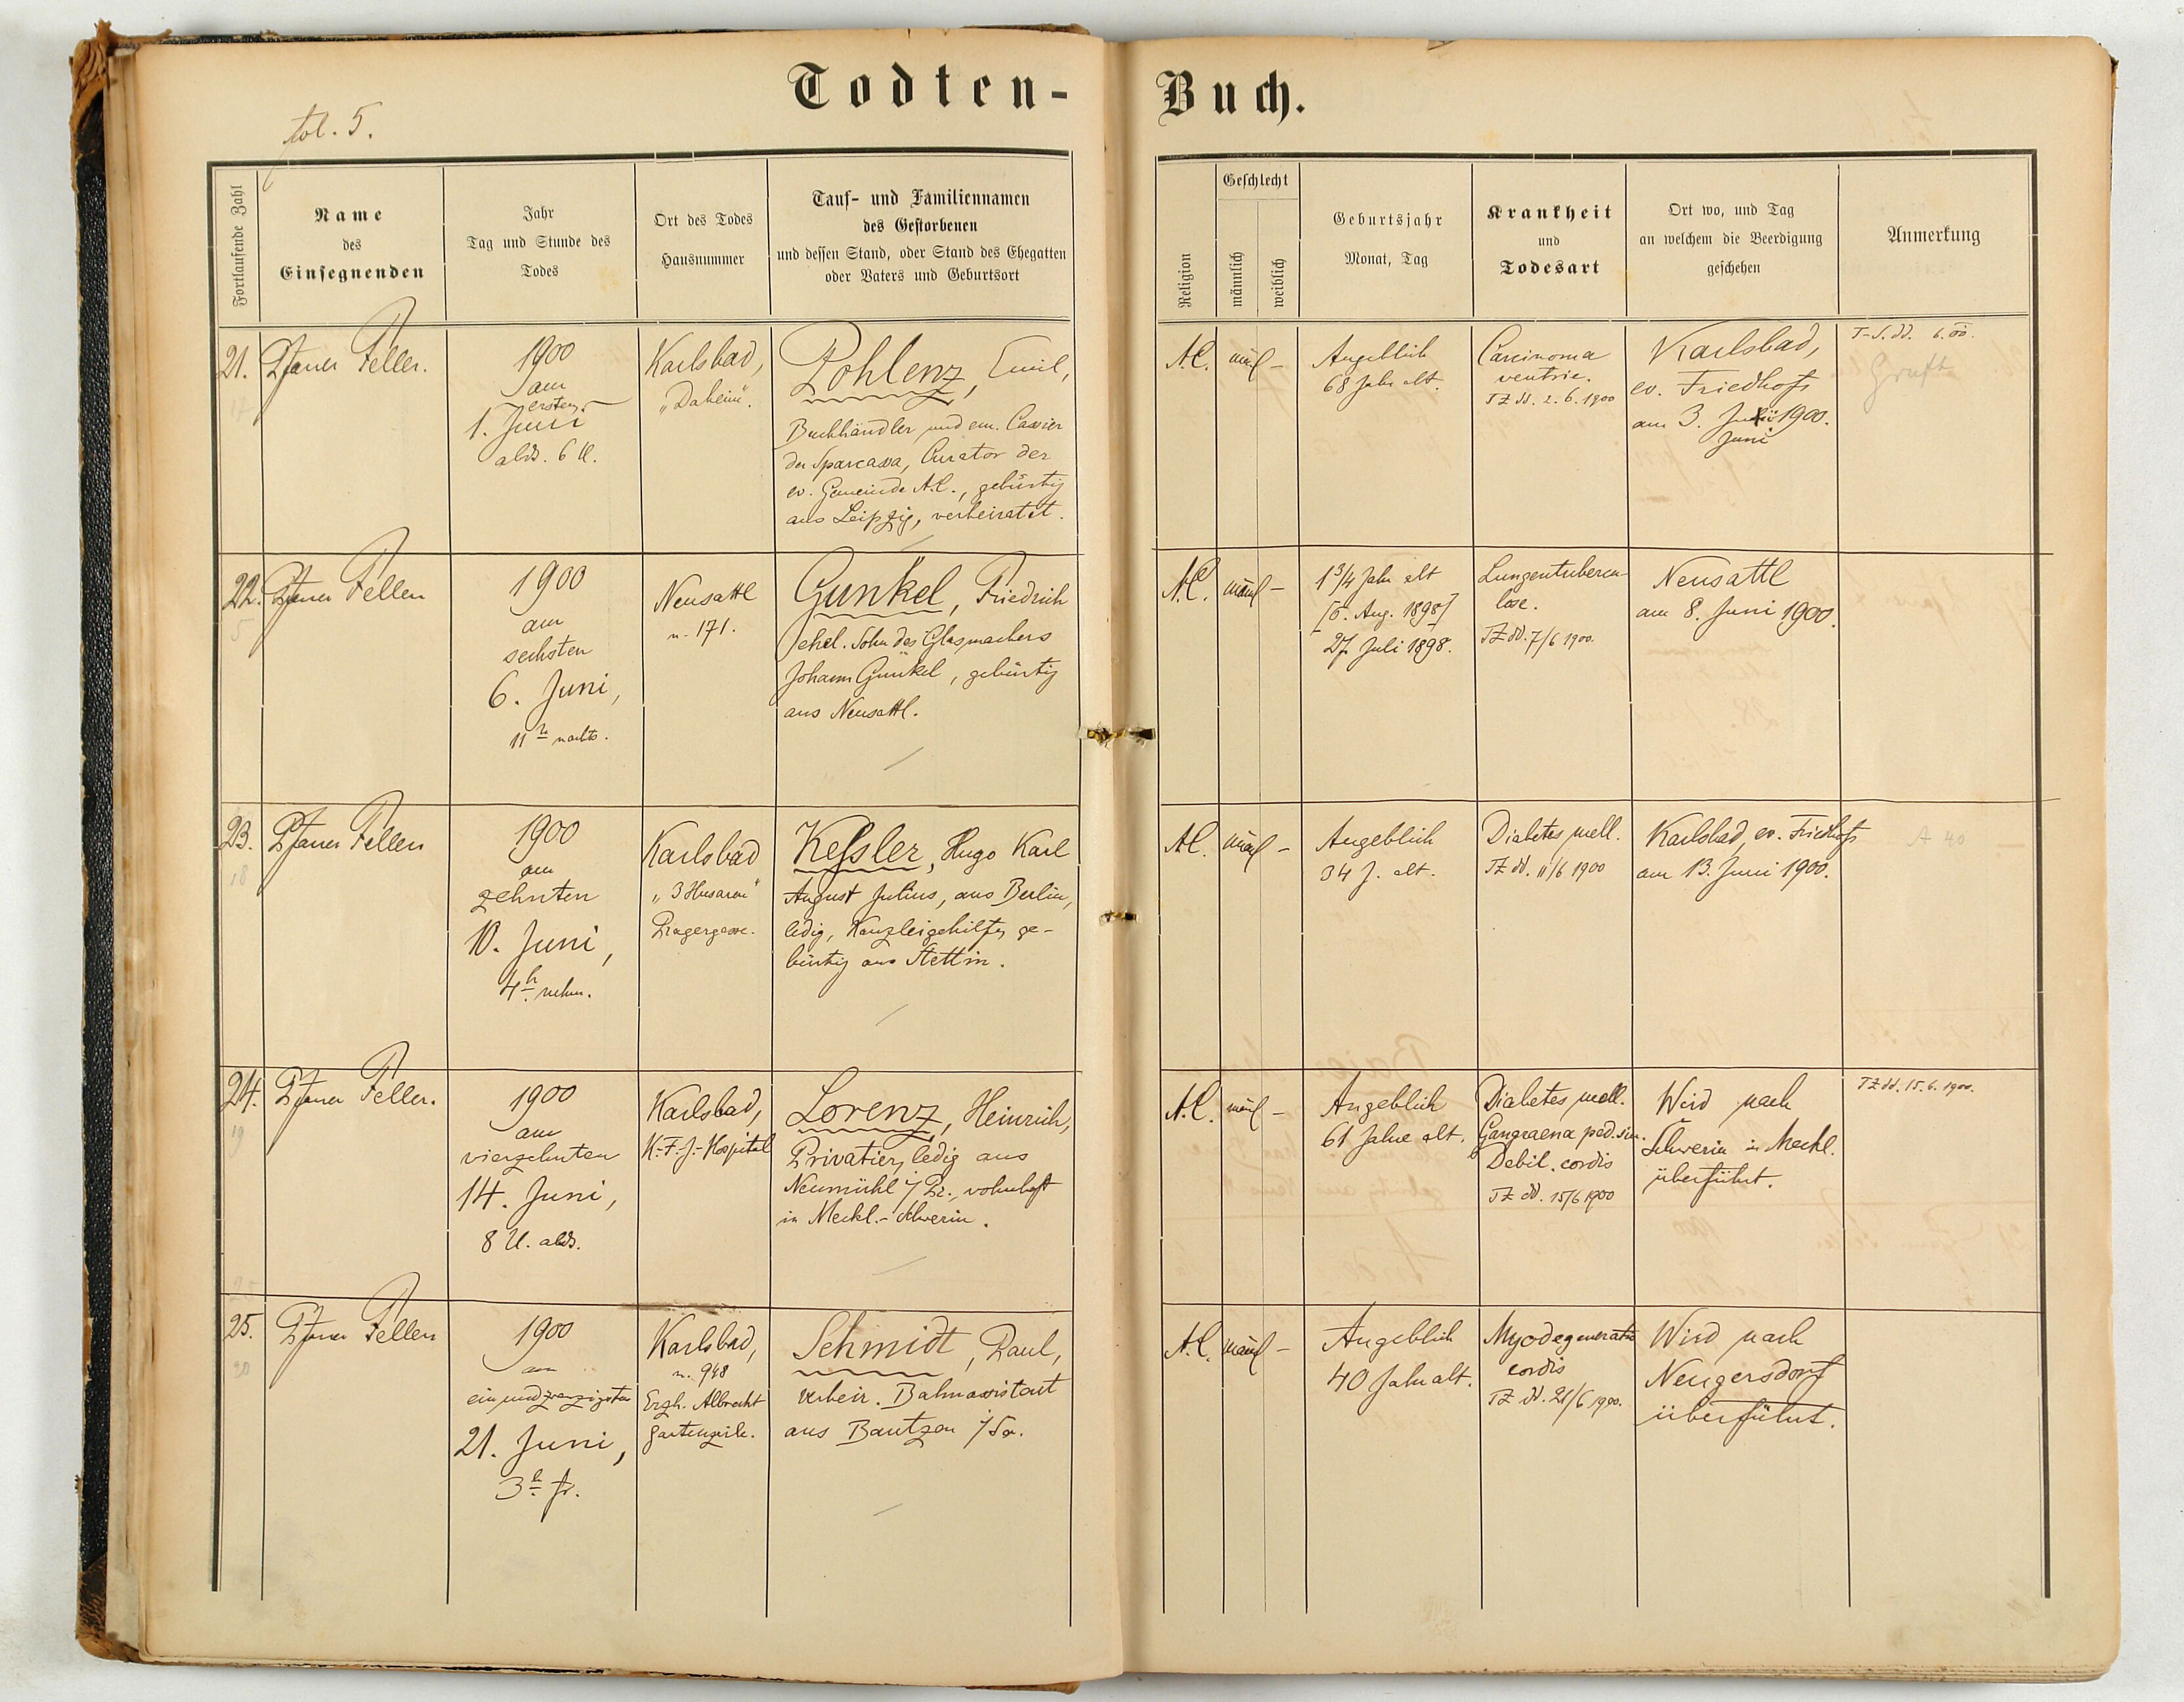 Todten-
Buch.
fol. 5.
Fortlaufende Zahl
Name
des
Einsegnenden
Jahr
Tag und Stunde des
Todes
Ort des Todes
Hausnummer
Tauf- und Familiennamen
des Gestorbenen
und dessen Stand, oder Stand des Ehegatten
oder Vaters und Geburtsort
Religion
Geschlecht
männlich
weiblich
Geburtsjahr
Monat, Tag
Krankheit
und
Todesart
Ort wo, und Tag
an welchem die Beerdigung
geschehen
Anmerkung
21.
17
Pfarrer Feller.
1900
am
ersten
1. Juni
abds. 6 U.
Karlsbad,
„Daheim".
Pohlenz, Emil,
Buchhändler und em. Cassier
der Sparcassa, Curator der
ev. Gemeinde A.C., gebürtig
aus Leipzig, verheiratet.
A.C.
männl –
Angeblich
68 Jahr alt.
Carcinoma
ventric.
TZ dd. 2. 6. 1900
Karlsbad,
ev. Friedhofs
am 3. Juli 1900.
Juni
T-S. dd. 6. 00.
Gruft
22.
5
Pfarrer Feller
1900
am
sechsten
6. Juni,
11 h nachts.
Neusattl
n. 171.
Gunkel, Friedrich
ehel. Sohn des Glasmachers
Johann Gunkel, gebürtig
aus Neusattl.
A.C.
männl –
1 3/4 Jahr alt
[6. Aug. 1898]
27. Juli 1898.
Lungentubercu-
lose.
TZ dd. 7/6 1900.
Neusattl
am 8. Juni 1900.
23.
18
Pfarrer Feller
1900
am
zehnten
10. Juni,
4 h nchm.
Karlsbad
„3 Husaren"
Pragergasse.
Kessler, Hugo Karl
August Julius, aus Berlin,
ledig, Kanzleigehilfe, ge-
bürtig aus Stettin.
A.C.
männl –
Angeblich
34 J. alt.
Diabetes mell.
TZ dd. 11/6 1900
Karlsbad, ev. Friedhofs
am 13. Juni 1900.
A 40
24.
19
Pfarrer Feller.
1900
am
vierzehnten
14. Juni,
8 U. abds.
Karlsbad,
K.-F.-J.-Hospital
Lorenz, Heinrich,
Privatier, ledig aus
Neumühl i/Pr., wohnhaft
in Meckl.-Schwerin.
A.C.
männl –
Angeblich
61 Jahre alt.
Diabetes mell.
Gangraena ped. sin.
Debil. cordis
TZ dd. 15/6 1900
Wird nach
Schwerin in Meckl.
überführt.
TZ dd. 15. 6. 1900.
25.
20
Pfarrer Feller
1900
am
einundzwanzigsten
21. Juni,
3 h fr.
Karlsbad,
n. 948
Erzh. Albrecht
Gartenzeile.
Schmidt, Paul,
verheir. Bahnassistent
aus Bautzen i/Sa.
A.C.
männl –
Angeblich
40 Jahr alt.
Myodegeneratio
cordis
TZ dd. 21/6 1900.
Wird nach
Neugersdorf
überführt.